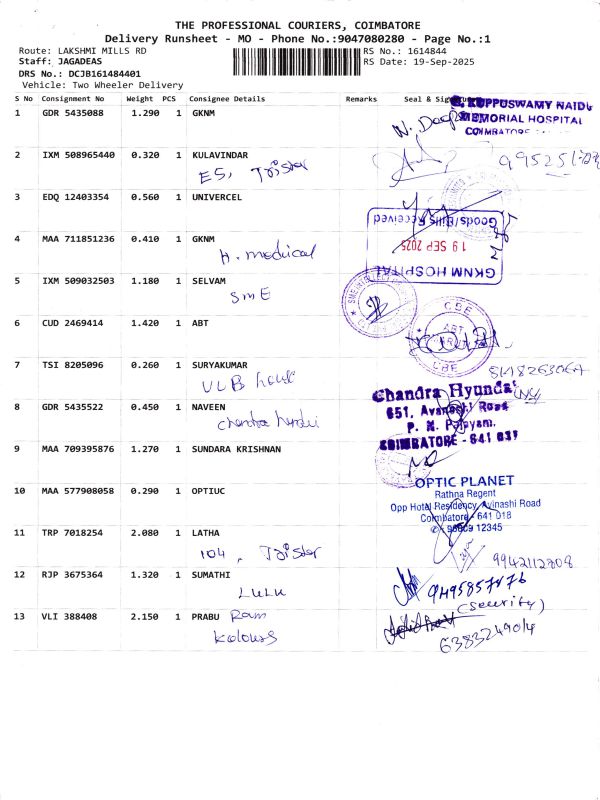 THE PROFESSIONAL COURIERS, COIMBATORE
Delivery Runsheet - MO - Phone No.:9047080280 - Page No.:1
Route: LAKSHMI MILLS RD
RS No.: 1614844
Staff: JAGADEAS
RS Date: 19-Sep-2025
DRS No.: DCJB161484401
Vehicle: Two Wheeler Delivery
S No Consignment No Weight PCS Consignee Details Remarks Seal &
KUPPUSWAMY NAIDU
MEMORIAL HOSPITAL
COIMBATORE
1 GDR 5435088 1.290 1 GKNM
2 IXM 508965440 0.320 1 KULAVINDAR
E5, Tristar
3 EDQ 12403354 0.560 1 UNIVERCEL
Goods/Bills Received
19 SEP 2025
GKNM HOSPITAL
4 MAA 711851236 0.410 1 GKNM
H. medical
5 IXM 509032503 1.180 1 SELVAM
SME
6 CUD 2469414 1.420 1 ABT
CBE
ABT
CBE
7 TSI 8205096 0.260 1 SURYAKUMAR
VLB house
8 GDR 5435522 0.450 1 NAVEEN
Chandra Hyundai
Chandra Hyundai
651, Avanashi Road
P. N. Palayam.
COIMBATORE - 641 037
9 MAA 709395876 1.270 1 SUNDARA KRISHNAN
10 MAA 577908058 0.290 1 OPTIUC
OPTIC PLANET
Rathna Regent
Opp Hotel Residency, Avinashi Road
Coimbatore - 641 018
11 TRP 7018254 2.080 1 LATHA
104, Tristar
9942112708
12 RJP 3675364 1.320 1 SUMATHI
LULU
9495857476
(Security)
13 VLI 388408 2.150 1 PRABU Ram
Kolours
6383249014